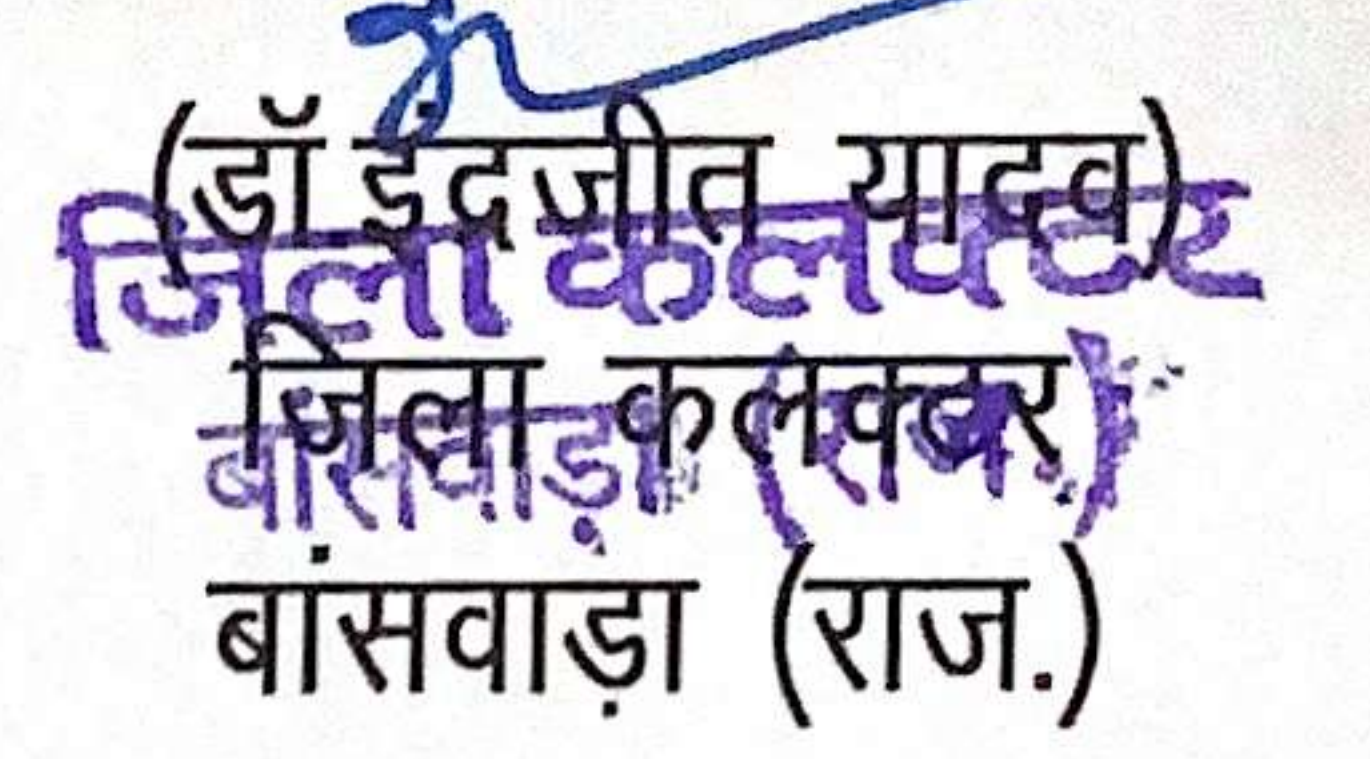 (डॉ इंद्रजीत यादव)
जिला कलक्टर
जिला कलक्टर
बांसवाड़ा (राज.)
बांसवाड़ा (राज.)